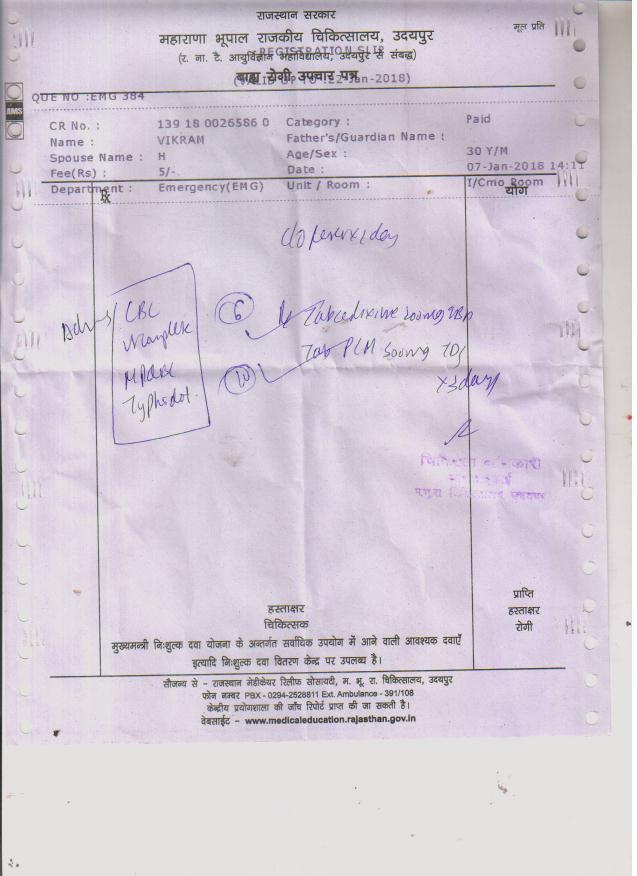 राजस्थान सरकार
मूल प्रति
महाराणा भूपाल राजकीय चिकित्सालय, उदयपुर
REGISTRATION SLIP
(र. ना. टै. आयुर्विज्ञान महाविद्यालय, उदयपुर से संबद्ध)
बाह्य रोगी उपचार पत्र
22-Jan-2018)
QUE NO :EMG 384
AMS
CR No. : 139 18 0026586 0 Category : Paid
Name : VIKRAM Father's/Guardian Name :
Spouse Name : H Age/Sex : 30 Y/M
Fee(Rs) : 5/-. Date : 07-Jan-2018 14:11
Department : Emergency(EMG) Unit / Room : I/Cmo Room
Rx योग
c/o fever x 1 day
Adv
CBC
Typhidot.
6 Tab cefixime 200mg BD
10 Tab PCM 500mg TDS
x 3 days
हस्ताक्षर
चिकित्सक
प्राप्ति
हस्ताक्षर
रोगी
मुख्यमन्त्री निःशुल्क दवा योजना के अन्तर्गत सर्वाधिक उपयोग में आने वाली आवश्यक दवाएँ
इत्यादि निःशुल्क दवा वितरण केन्द्र पर उपलब्ध है।
सौजन्य से - राजस्थान मेडीकेयर रिलीफ सोसायटी, म. भू. रा. चिकित्सालय, उदयपुर
फोन नम्बर PBX - 0294-2528811 Ext. Ambulance - 391/108
केन्द्रीय प्रयोगशाला की जाँच रिपोर्ट प्राप्त की जा सकती है।
वेबसाईट - www.medicaleducation.rajasthan.gov.in